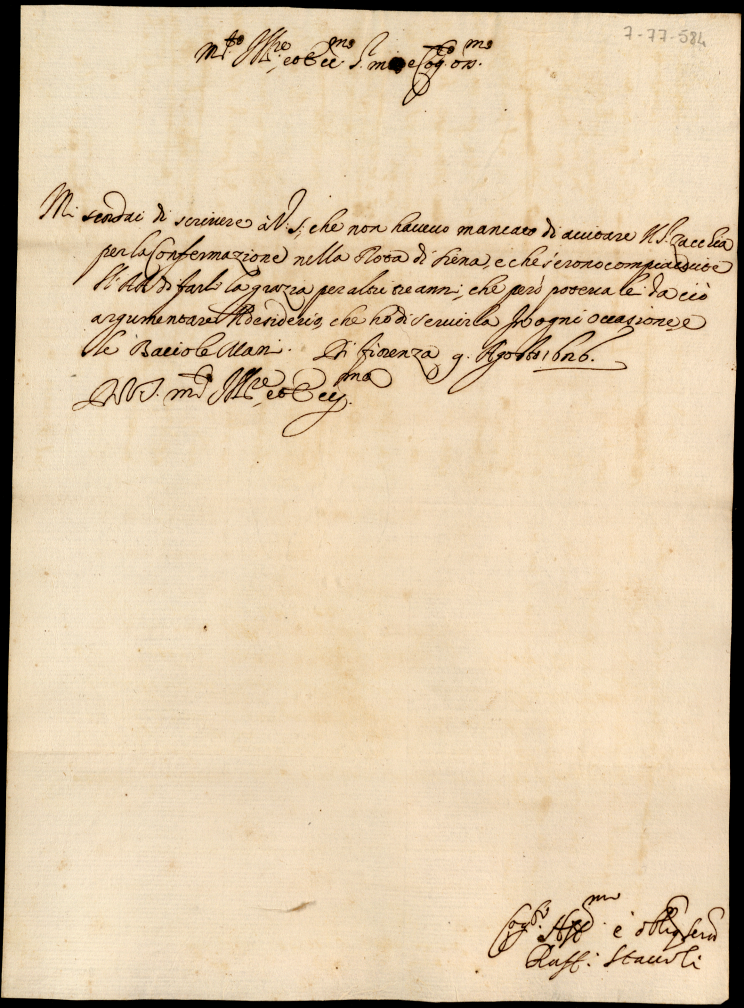 7-77-584
m.to Ill.re et Ecc.mo S. mio e Cog. oss.mo
Mi scordai di scrivere à V.S. che non havevo mancato di aiutare il S. Zacchia
per la Confermazione nella Rota di Siena, e che s'erono compiaciute
l'AA. di farli la grazia per altri tre anni, che però poterà le da ciò
argumentare il desiderio, che hò di servirla in ogni occasione, e
le Bacio le Mani. Di fiorenza 9. Agosto 1626.
Di V.S. m.to Ill.re et Ecc.ma
Aff.mo è oblig. Ser.
Raff. Staccoli